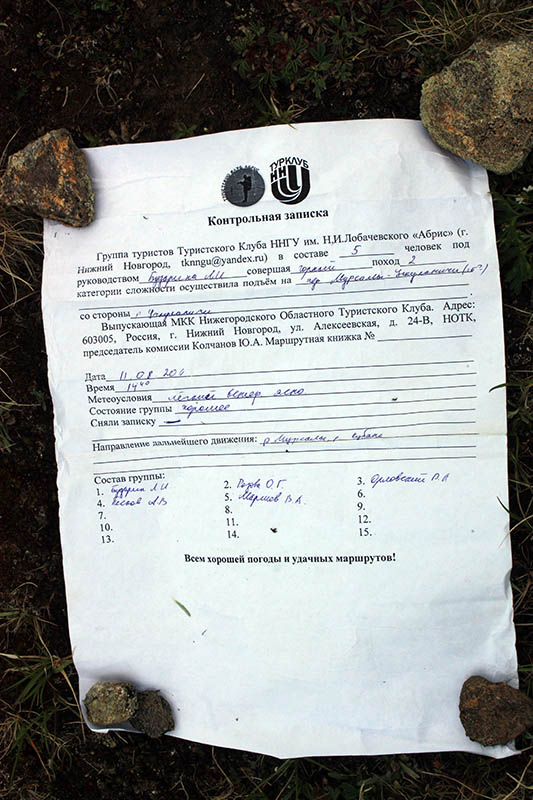 ТУРКЛУБ
ННГУ
Контрольная записка
Группа туристов Туристского Клуба ННГУ им. Н.И.Лобачевского «Абрис» (г.
Нижний Новгород, tknngu@yandex.ru) в составе 5 человек под
руководством Л.И совершая горный поход 2
категории сложности осуществила подъём на пер.
со стороны р.
Выпускающая МКК Нижегородского Областного Туристского Клуба. Адрес:
603005, Россия, г. Нижний Новгород, ул. Алексеевская, д. 24-В, НОТК,
председатель комиссии Колчанов Ю.А. Маршрутная книжка №
Дата 11.08
Время 14 40
Метеоусловия лёгкий ветер ясно
Состояние группы хорошее
Сняли записку —
Направление дальнейшего движения: р.
Состав группы:
1. Л.И 2. О.Г. 3. Орловский
4. 5. 6.
7. 8. 9.
10. 11. 12.
13. 14. 15.
Всем хорошей погоды и удачных маршрутов!